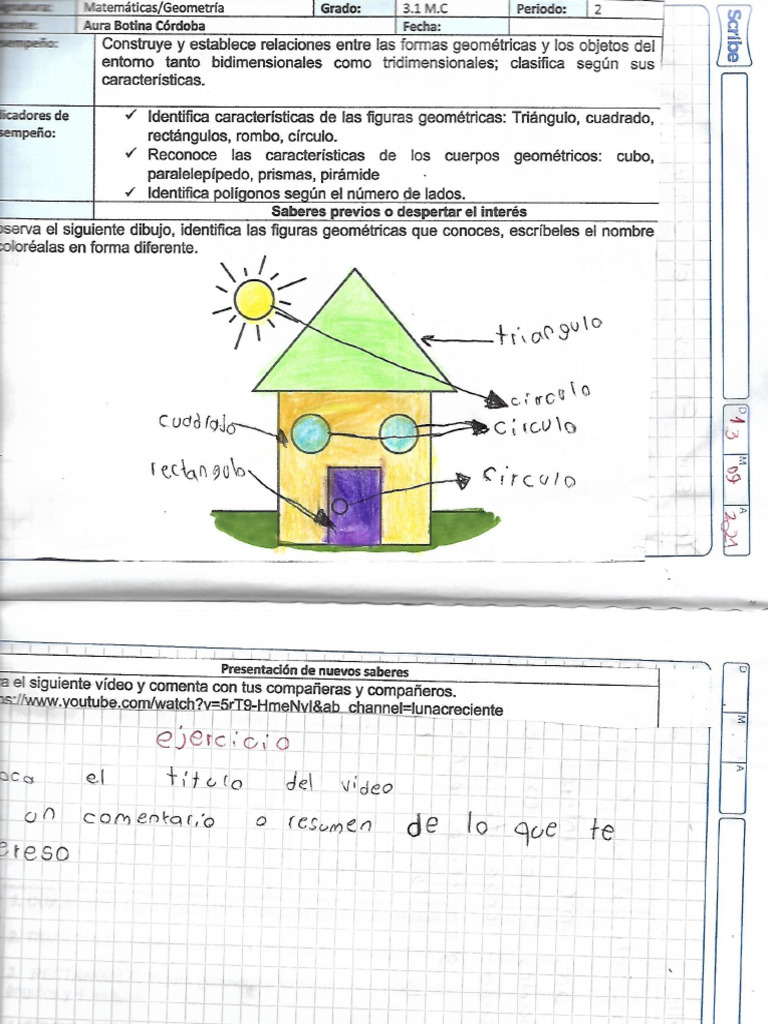 Matemáticas/Geometría Grado: 3.1 M.C Periodo: 2
Aura Botina Córdoba Fecha:
sempeño: Construye y establece relaciones entre las formas geométricas y los objetos del
entorno tanto bidimensionales como tridimensionales; clasifica según sus
características.
dicadores de
sempeño:
✓ Identifica características de las figuras geométricas: Triángulo, cuadrado,
rectángulos, rombo, círculo.
✓ Reconoce las características de los cuerpos geométricos: cubo,
paralelepípedo, prismas, pirámide
✓ Identifica polígonos según el número de lados.
Saberes previos o despertar el interés
bserva el siguiente dibujo, identifica las figuras geométricas que conoces, escríbeles el nombre
coloréalas en forma diferente.
triangulo
circulo
cuadrado
circulo
rectangulo
circulo
Scribe
D M A
13 09 2021
Presentación de nuevos saberes
a el siguiente vídeo y comenta con tus compañeras y compañeros.
ps://www.youtube.com/watch?v=5rT9-HmeNvI&ab_channel=lunacreciente
ejercicio
oca el titulo del video
un comentario o resumen de lo que te
ereso
D M A